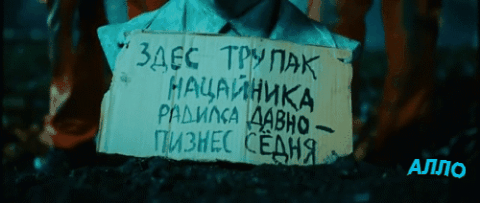 ЗДЕС ТРУПАК
НАЦАЙНИКА
РАДИЛСА ДАВНО –
ПИЗНЕС СЁДНЯ
АЛЛО